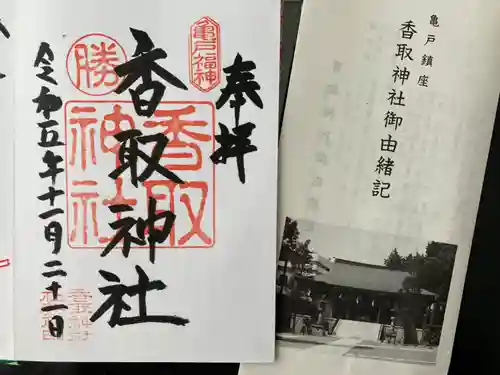 奉拝
亀戸福神
香取神社
勝
香取
神社
令和五年十一月二十一日
亀戸鎮座
香取神社御由緒記